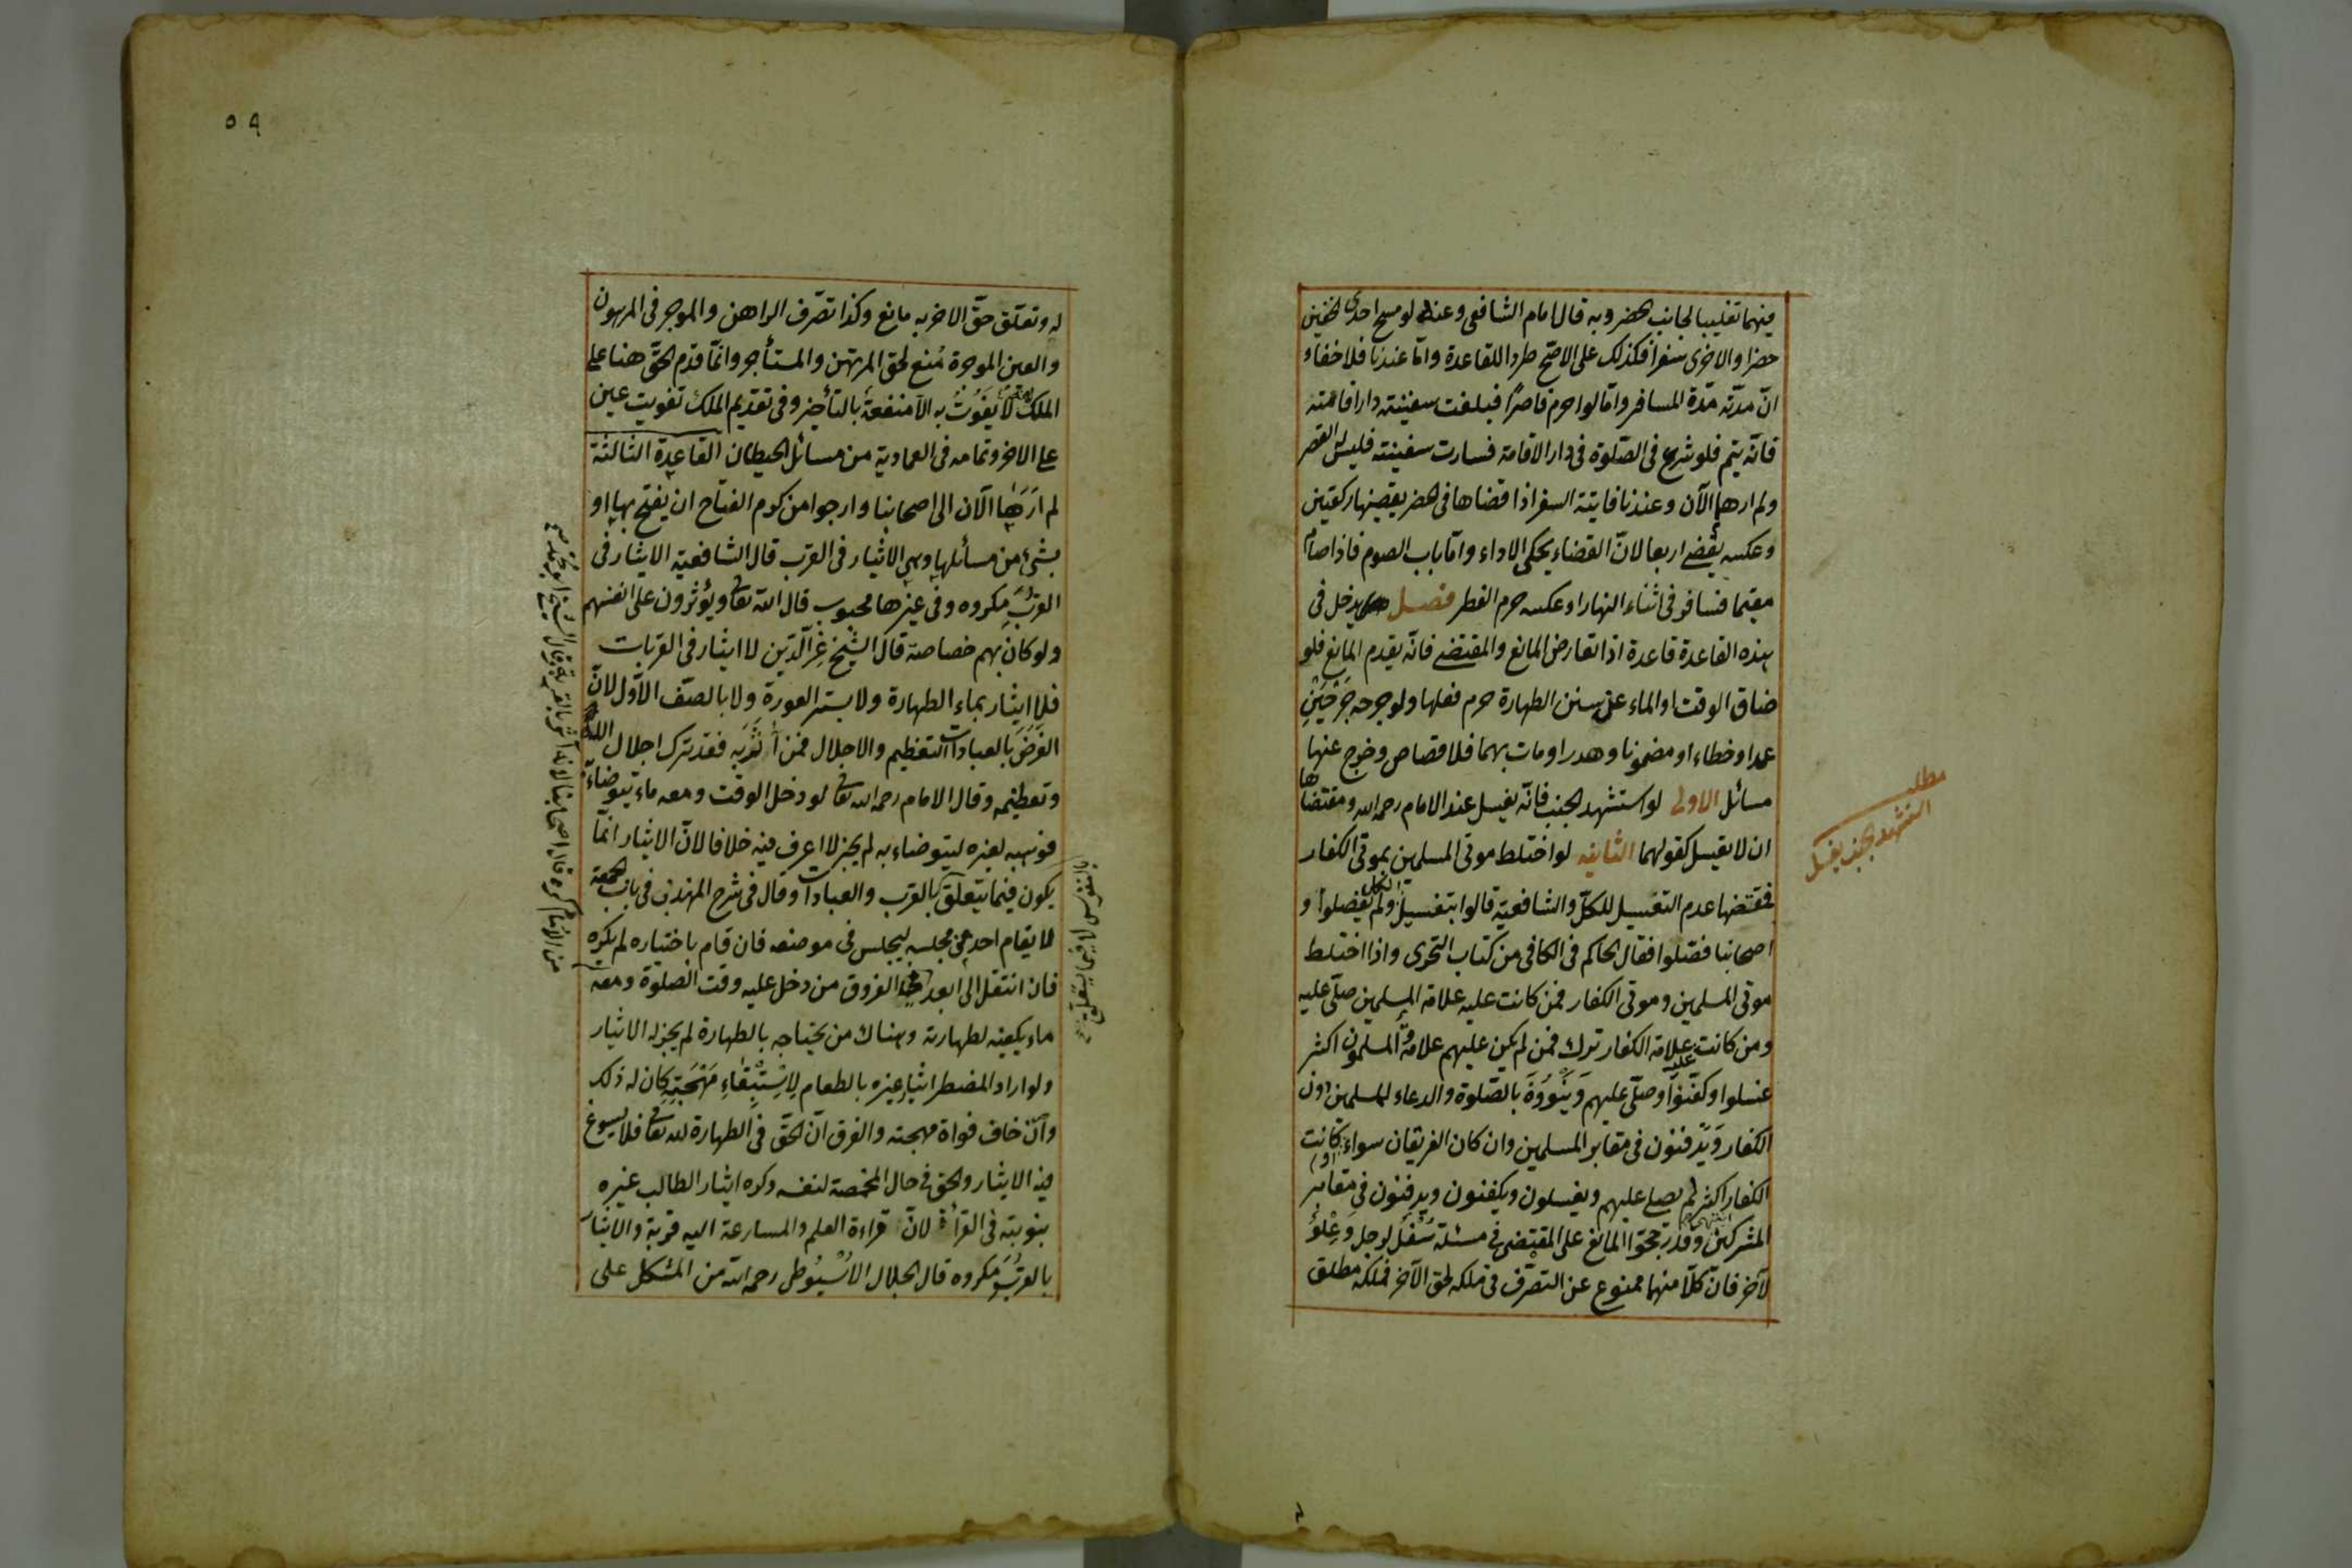 فيهما تغليبا لجانب الحضر وبه قال امام الشافعى وعنده لو مسح احدى الخفين
حضرا والاخرى سفرا فكذلك على الاصح طردا للقاعدة وامّا عندنا فلا خفاء
انّ مدّته مدّة المسافر وامّا لو احرم قاصرًا فبلغت سفينته دار اقامته
فانّه يتم فلو شرع فى الصّلوة فى دار الاقامة فسارت سفينته فليس له القصر
ولم ارها الآن وعندنا فايتة السفر اذا قضاها فى الحضر يقضيها ركعتين
وعكسه يقضى اربعا لانّ القضاء يحكى الاداء وامّا باب الصوم فاذا صام
مقيما فسافر فى اثناء النهار او عكسه حرم الفطر فصل يدخل فى
هذه القاعدة قاعدة اذا تعارض المانع والمقتضى فانّه يقدم المانع فلو
ضاق الوقت او الماء عن سنن الطهارة حرم فعلها ولو جرحه جَرْحَيْنِ
عمدا وخطاء او مضمونا وهدرا ومات بهما فلا قصاص وخرج عنها
مسائل الاولى لو استشهد الجنب فانّه يغسل عند الامام رحمه الله ومقتضاها
ان لا يغسل كقولهما الثانية لو اختلط موتى المسلمين بموتى الكفار
فمقتضها عدم التغسيل للكلّ والشافعية قالوا بتغسيل الكل ولم يفصلوا و
اصحابنا فصّلوا فقال الحاكم فى الكافى من كتاب التحرى واذا اختلط
موتى المسلمين وموتى الكفار فمن كانت عليه علامة المسلمين صلّى عليه
ومن كانت عليه علامة الكفار ترك فمن لم يكن عليهم علامة والمسلمون اكثر
غسلوا وكفّنوا وصلّى عليهم وَيَنْوُونَ بالصّلوة والدعاء للمسلمين دون
الكفار وَيُدفنون فى مقابر المسلمين وان كان الفريقان سواء او كانت
الكفار اكثر لم يصل عليهم ويغسلون ويكفنون ويدفنون فى مقابر
المشركين انتهى وقد رجحوا المانع على المقتضى فى مسئلة سُفْل لرجل وعِلْوُ
لآخر فانّ كلّا منهما ممنوع عن التصرّف فى ملكه لحق الآخر فملكه مطلق
مطلب
استشهد الجنب يغسل
٥٩
له وتعلّق حقّ الاخر به مانع وكذا تصّرف الراهن والموجر فى المرهون
والعين الموجرة مُنع لحق المرتهن والمستأجر وانّما قدّم الحقّ هنا على
الملك لانّه لا يَفُوْتُ به الّا منفعةُ بالتأخير وفى تقديم الملك تفويت عين
على الاخر وتمامه فى العمادية من مسائل الحيطان القاعدة الثالثة
لم اَرَهَا الآن الى اصحابنا وارجوا من كرم الفتاح ان يفتح بها او
بشئ من مسائلها وهى الايثار فى القرب قال الشافعية الايثار فى
القُرَبِ مكروه وفى غيرها محبوب قال الله تعالى ويؤثرون على انفسهم
ولو كان بهم خصاصة قال الشيخ عزّ الّدين لا ايثار فى القربات
فلا ايثار بماء الطهارة ولا بستر العورة ولا بالصّف الاوّل لانّ
الغَرَضَ بالعبادات التعظيم والاجلال فمن أثَرَ به فقد ترك اجلال الله
وتعظيمه وقال الامام رحمه الله تعالى لو دخل الوقت ومعه ماء يتوضاء به
فوهبه لغيره ليتوضاء به لم يجز لا اعرف فيه خلافا لانّ الايثار انّما
يكون فيما يتعلّق بالقرب والعبادات وقال فى شرح المهذب فى باب الجمعة
لا يقام احد عن مجلسه ليجلس فى موضعه فان قام باختياره لم يكره
فان انتقل الى ابعد الفروق من دخل عليه وقت الصلوة ومعه
ماء يكفيه لطهارته وهناك من يحتاجه بالطهارة لم يجز له الايثار
ولو اراد المضطر ايثار غيره بالطعام لِاِسْتِبْقَاءِ مَهْجَتِهِ كان له ذلك
وان خاف فواة مهجته والفرق انّ الحق فى الطهارة لله تعالى فلا يسوغ
فيه الايثار والحق فى حال المخمصة لنفسه وكره ايثار الطالب غيره
بنوبته فى القرأة لانّ قراءة العلم والمسارعة اليه قربة والايثار
بالقُرَبِ مكروه قال الجلال الاُسْيُوُطى رحمه الله من المشكل على